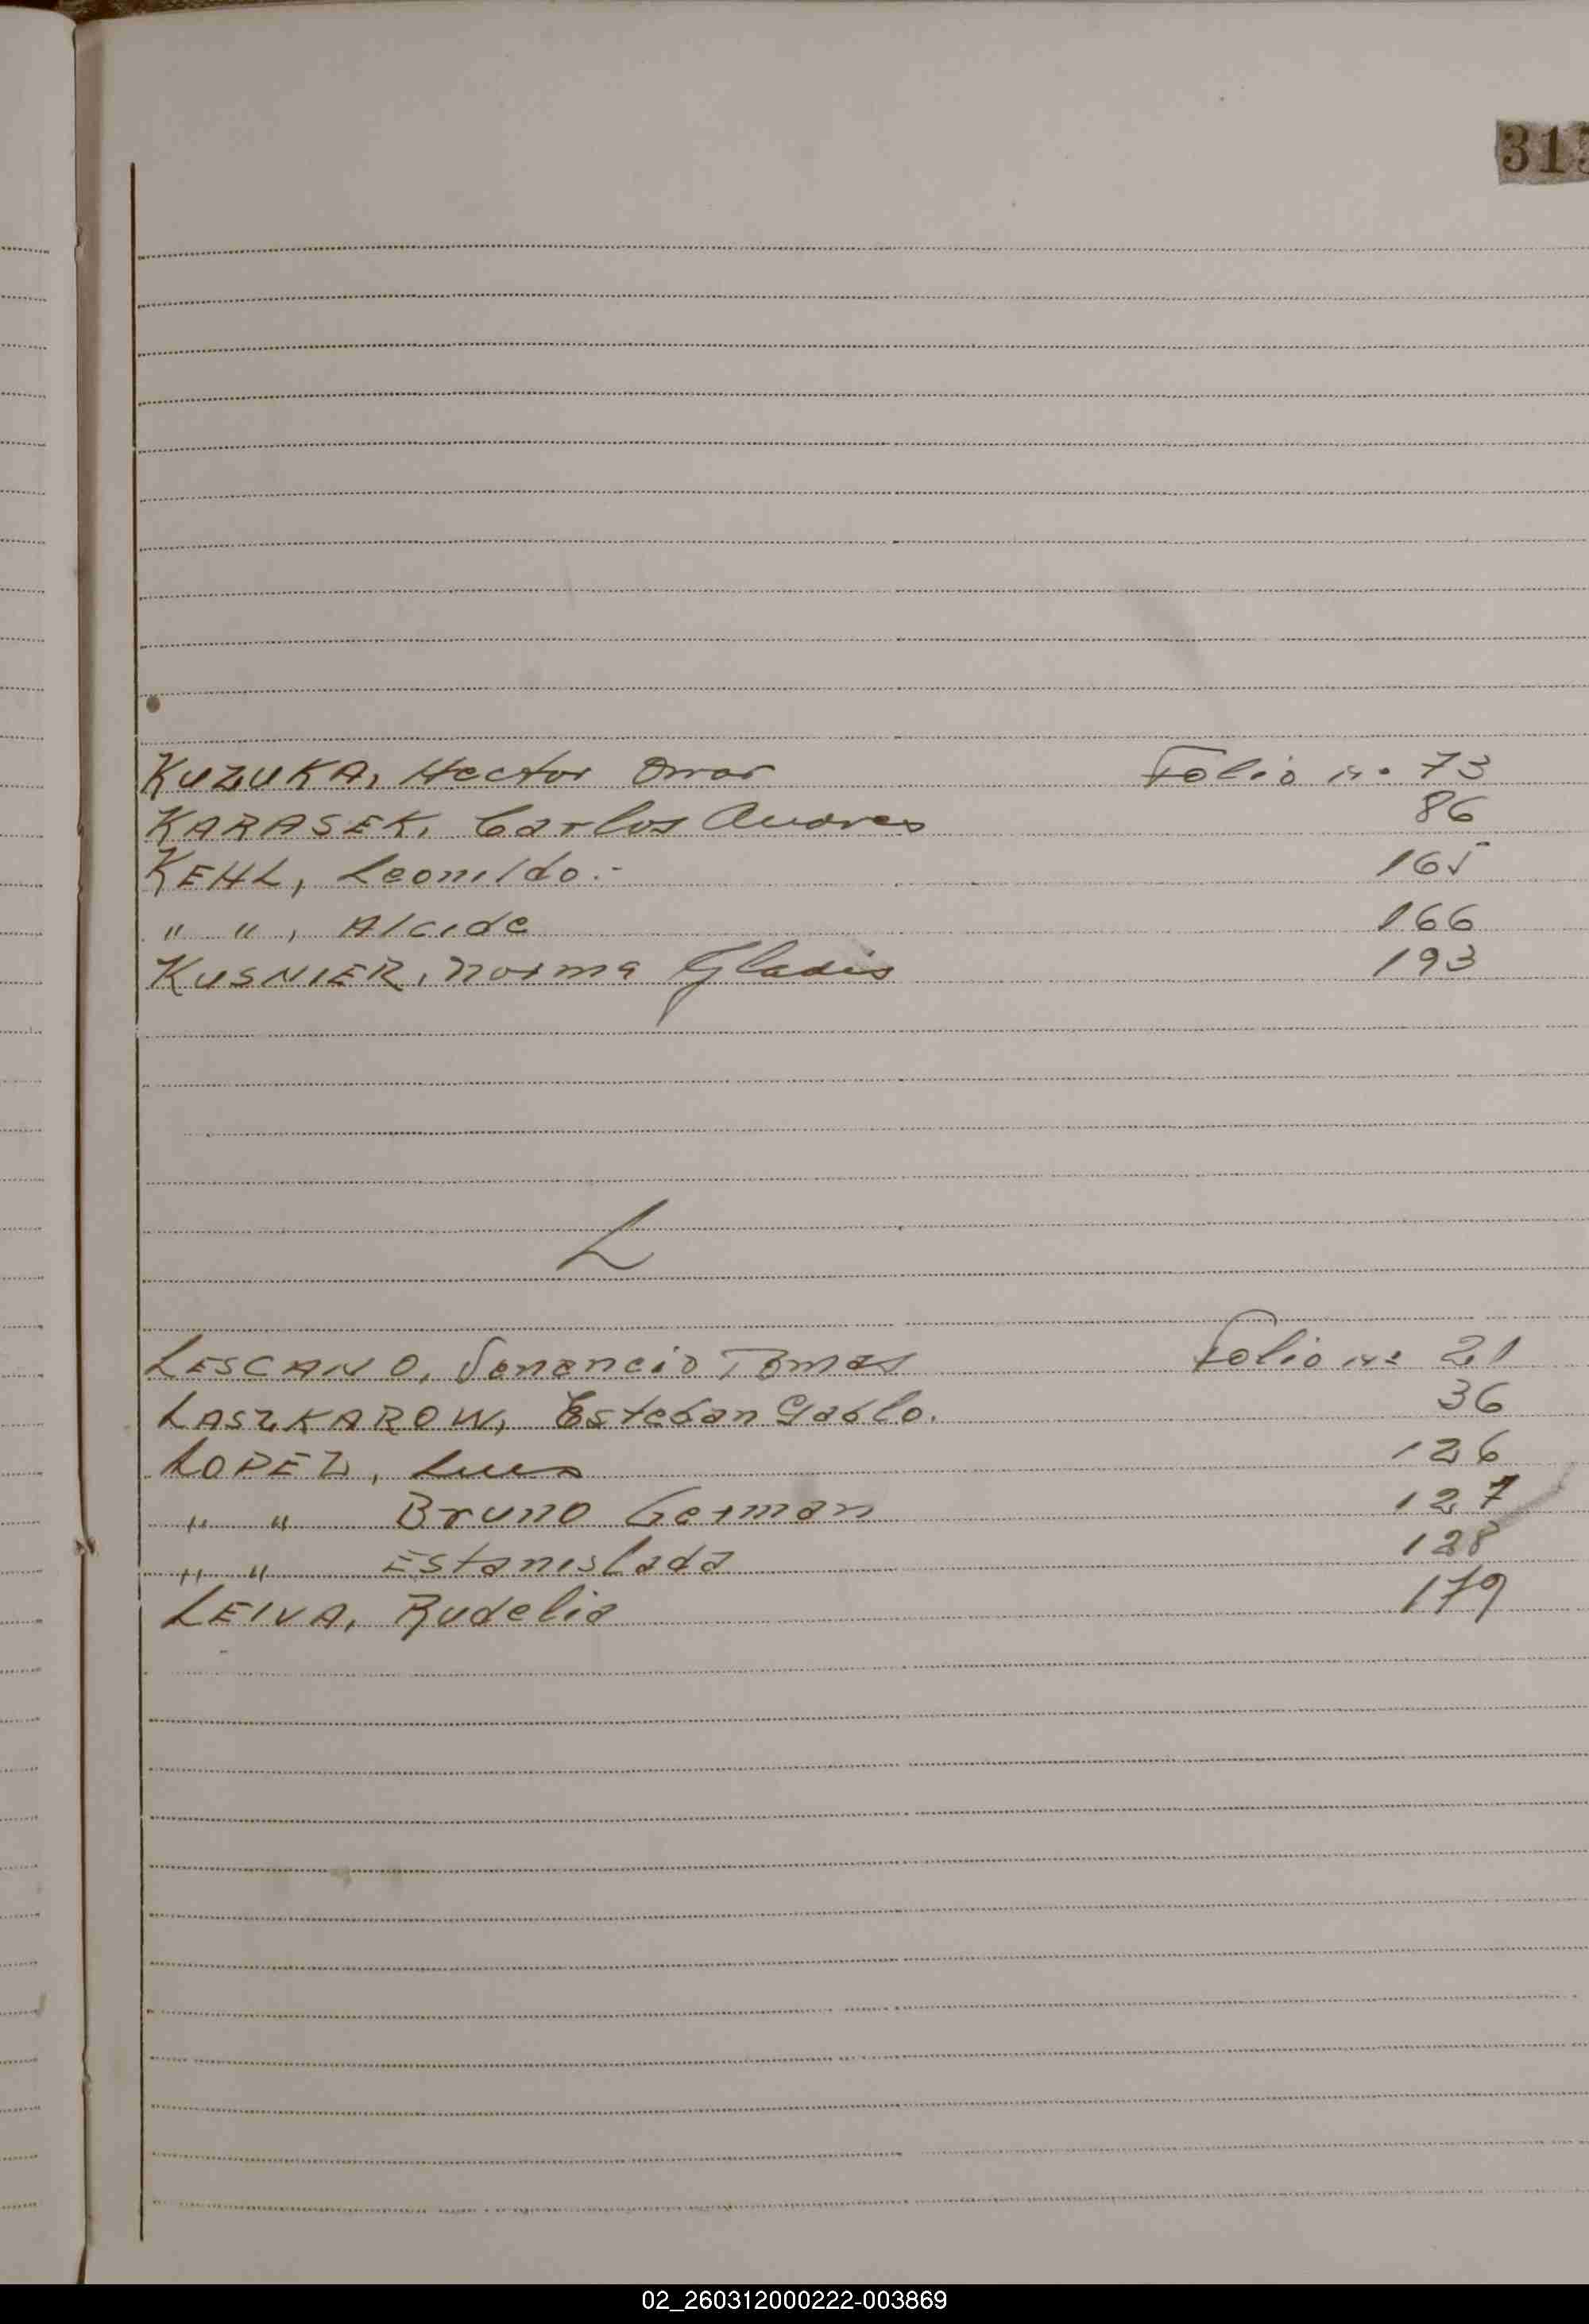 313
KUZUKA, Hector Omar Folio nº 73
KARASEK, Carlos Andres 86
KEHL, Leonildo.- 165
" " , Alcide 166
KUSNIER, Norma Gladis 193
L
LESCANO, Venancio Tomas Folio nº 21
LASZKAROW, Esteban Pablo. 36
LOPEZ, Luis 126
" " Bruno German 127
" " Estanislada 128
LEIVA, Rudelia 179
02_260312000222-003869